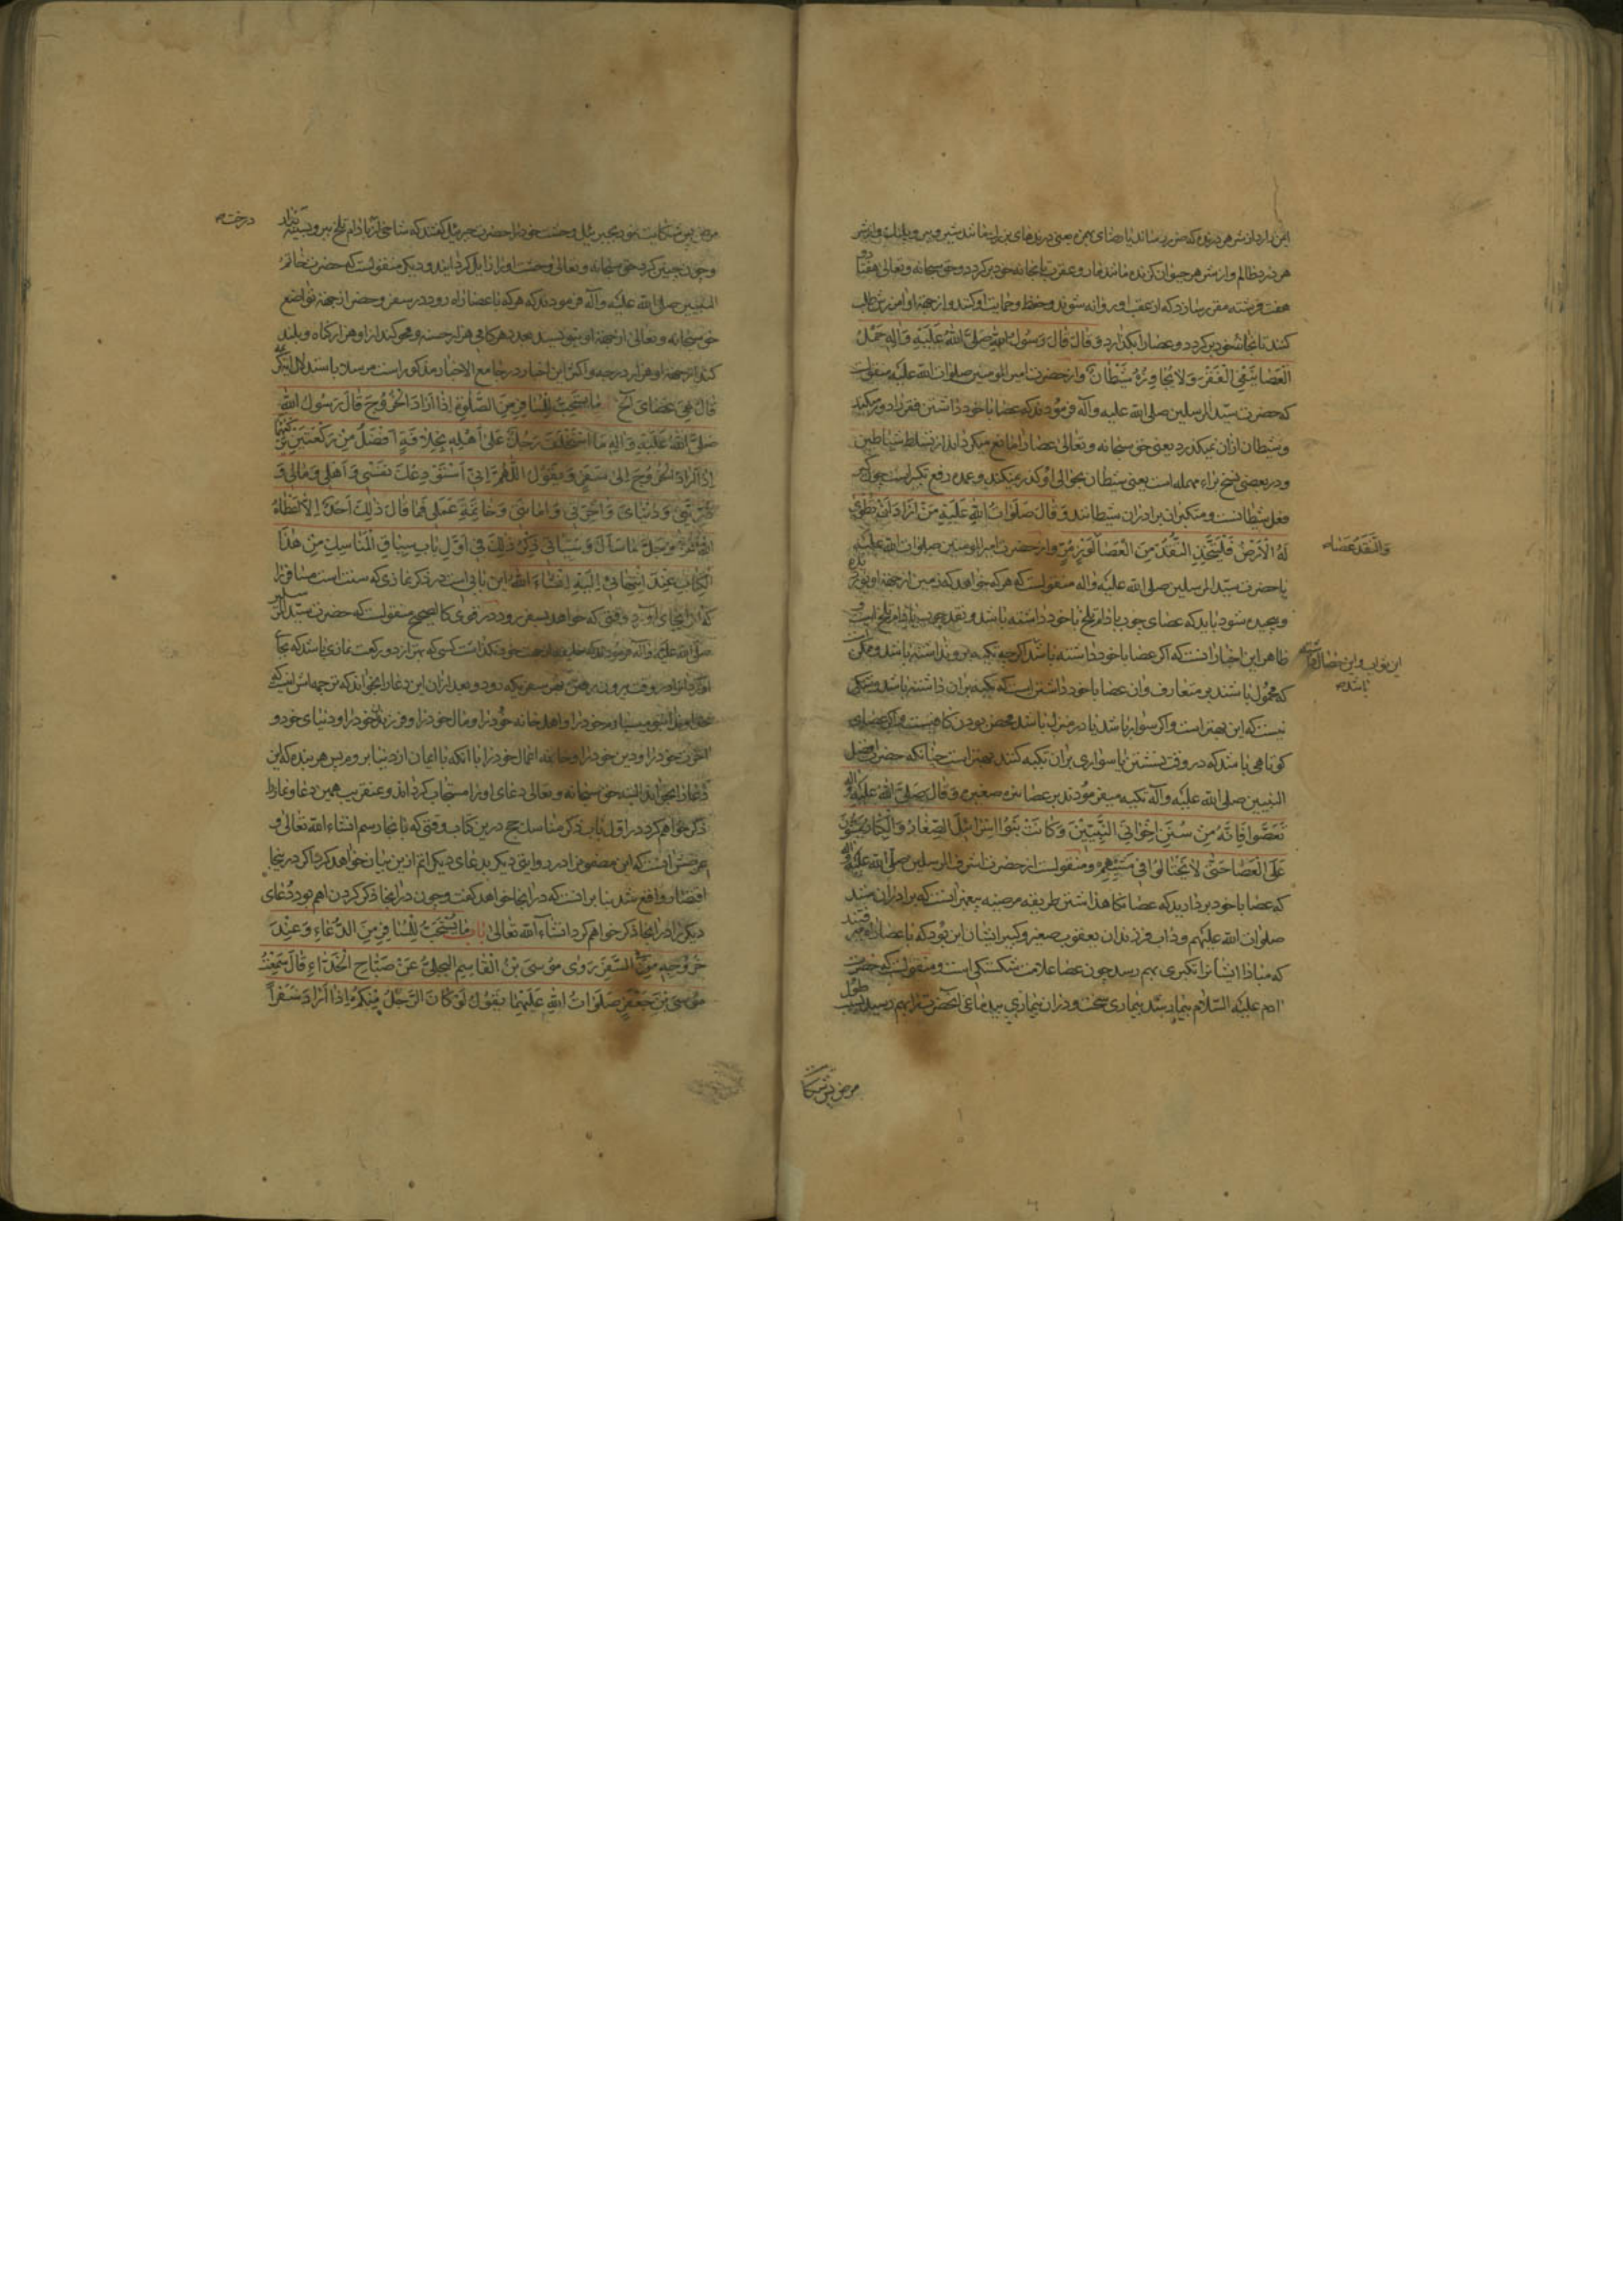 ایمن دارد از شر هر درنده که ضرر رساند یا صدای یعنی درندهای مانند شیر و ببر و پلنک و از شر
هر دزد ظالم و از شر هر حیوان کزنده مانند مار و عقرب تا بخانه خود برکردد و حق سبحانه و تعالی هفتاد و
هفت فرشته مقرر سازد که از عقب او روانه شوند و حفظ و حمایت او کنند و از جهة او آمرزش طلب
کنند تا بخانه خود برکردد و عصا را بکذارد وَ قٰالَ قٰالَ رَسُولُ اللهِ صَلَّی اللهُ عَلَیْهِ وَآلِهِ حَمْلُ
الْعَصٰا یَنْفِی الْفَقْرَ وَلا یُجٰاوِرُهُ شَیْطٰانٌ و از حضرت امیر المومنین صلوات الله علیه منقولست
که حضرت سیّد المرسلین صلی الله علیه و آله فرمودند که عصا با خود داشتن فقر را دور میکند
و شیطان ازان نمیکذرد یعنی حق سبحانه و تعالی عصا را مانع میکرداند از تسلط شیاطین
و در بعضی نسخ براء مهمله است یعنی شیطان بحوالی او کذر نمیکند و عمده دفع تکبر است چون تکبر
فعل شیطانست و متکبران برادران شیطانند وَ قٰالَ صَلَوٰاتُ اللهِ عَلَیْهِ مَنْ اَرٰادَ اَنْ تُطْوٰی
لَهُ الْاَرْضُ فَلْیَتَّخِذِ النُّقُدَ مِنَ الْعَصٰا لَوْزٍ مُرٍّ و از حضرت امیر المومنین صلوات الله علیه
وَالنُّقُدُ عَصٰا
یا حضرت سیّد المرسلین صلی الله علیه و آله منقولست که هر که خواهد که زمین از جهة او نوردیده
و پیچیده شود باید که عصای چوب بادام تلخ با خود داشته باشد و نقد چوب بادام تلخ است و
ظاهر این اخبار آنست که اکر عصا با خود داشته باشد اکر چه تکیه بر او نداشته باشد و ممکن است
این ثواب و این خصال را داشته باشد
که محمول باشند بر متعارف و آن عصا با خود داشتن است که تکیه بران داشته باشد و شکی
نیست که این بهتر است و اکر سوار باشد یا در منزل باشد محض بودن کافیست و اکر عصای
کوتاهی باشد که در وقت نشستن یا سواری بران تکیه کنند بهتر است چنانکه حضرت افضل
النبیین صلی الله علیه و آله تکیه میفرمودند بر عصای صغیره وَ قٰالَ صَلَّی اللهُ عَلَیْهِ وَ آلِهِ
تَعَصَّوْا فَاِنَّهٰا مِنْ سُنَنِ اِخْوٰانِیَ النَّبِیِّینَ وَ کٰانَتْ بَنُو اِسْرٰائِیلَ الصِّغٰارُ وَالْکِبٰارُ یَمْشُونَ
عَلَی الْعَصٰا حَتّٰی لا یَخْتٰالُوا فِی مَشْیِهِمْ و منقولست از حضرت اشرف المرسلین صلی الله علیه و آله
که عصا با خود بردارید که عصا نکاهداشتن طریقه مرضیه پیغمبرانست که برادران منند
صلوات الله علیهم و داب فرزندان یعقوب صغیر و کبیر ایشان این بود که با عصا راه میرفتند
که مبادا ایشانرا تکبری بهم رسد چون عصا علامت شکستکی است و منقولست که حضرت
آدم علیه السّلام بیمار شد بیماری سخت و دران بیماری آنحضرترا بهم رسید
مرض پس شکا
مرض پس شکایت نمود بجبرئیل وحشت خود را حضرت جبرئیل کفتند که شاخی از بادام تلخ ببر و بسینه
درخت
و چون چنین کرد حق سبحانه و تعالی وحشت او را زایل کردانید و دیکر منقولست که حضرت خاتم
النبیین صلی الله علیه و آله فرمودند که هر که با عصا راه رود در سفر و حضر از جهة تواضع
حق سبحانه و تعالی از جهة او بنویسد بعدد هر کامی هزار حسنه و محو کند از او هزار کناه و بلند
کند از جهة او هزار درجه و اکثر این اخبار در جامع الاخبار مذکور است مرسلا
قٰالَ هِیَ عَصٰایَ الخ مٰا یُسْتَحَبُّ لِلْمُسٰافِرِ مِنَ الصَّلٰوةِ اِذٰا اَرٰادَ الْخُرُوجَ قٰالَ رَسُولُ اللهِ
صَلَّی اللهُ عَلَیْهِ وَ آلِهِ مَا اسْتَخْلَفَ رَجُلٌ عَلٰی اَهْلِهِ بِخِلٰافَةٍ اَفْضَلَ مِنْ رَکْعَتَیْنِ یَرْکَعُهُمٰا
اِذٰا اَرٰادَ الْخُرُوجَ اِلٰی سَفَرٍ وَ یَقُولُ اَللّٰهُمَّ اِنِّی اَسْتَوْدِعُکَ نَفْسِی وَ اَهْلِی وَ مٰالِی وَ
ذُرِّیَّتِی وَ دُنْیٰایَ وَ آخِرَتِی وَ اَمٰانَتِی وَ خٰاتِمَةَ عَمَلِی فَمٰا قٰالَ ذٰلِکَ اَحَدٌ اِلّا اَعْطٰاهُ
اللهُ عَزَّ وَ جَلَّ مٰا سَاَلَ وَ سَیَاْتِی ذِکْرُ ذٰلِکَ فِی اَوَّلِ بٰابِ سِیٰاقِ الْمَنٰاسِکِ مِنْ هٰذَا
الْکِتٰابِ عِنْدَ انْتِهٰائِی اِلَیْهِ اِنْشٰاءَ اللهُ این بابی است در ذکر نمازی که سنت است مسافر را
که آنرا بجای آورد وقتی که خواهد بسفر رود در قوی کالصحیح منقولست که حضرت سیّد المرسلین
صلی الله علیه و آله فرمودند که خلیفه بهتر از دو رکعت نمازی باشد که بجا
آورد آنرا در وقت بیرون رفتن بسفری که رود و بعد ازان این دعا را بخواند که ترجمه اش اینست که
خداوندا بتو میسپارم خود را و اهل خانه خود را و مال خود را و فرزندان خود را و دنیای خود و
آخرت خود را و دین خود را و خاتمه اعمال خود را با آنکه با ایمان از دنیا بروم پس هر بنده که این
دعا را بخواند البته حق سبحانه و تعالی دعای او را مستجاب کرداند و عنقریب همین دعا و نماز را
ذکر خواهم کرد در اول باب ذکر مناسک حج درین کتاب وقتی که بانجا رسم انشاء الله تعالی و
غرضش آنست که این مضمون را در روایتی دیکر بدعای دیکر اتم ازین بیان خواهد کرد اکر درینجا
اقتصار واقع شد بنا بر آنست که در آنجا خواهد کفت و چون در اینجا ذکر کردن اهم بود دُعای
دیکر را در اینجا ذکر خواهم کرد انشاءالله تعالی بٰابُ مٰا یُسْتَحَبُّ لِلْمُسٰافِرِ مِنَ الدُّعٰاءِ وَ عِنْدَ
خُرُوجِهِ فِی السَّفَرِ رَوٰی مُوسَی بْنُ الْقٰاسِمِ الْبَجَلِیُّ عَنْ صَبّٰاحٍ الْحَذّٰاءِ قٰالَ سَمِعْتُ
مُوسَی بْنَ جَعْفَرٍ صَلَوٰاتُ اللهِ عَلَیْهِمٰا یَقُولُ لَوْ کٰانَ الرَّجُلُ مِنْکُمْ اِذٰا اَرٰادَ سَفَراً